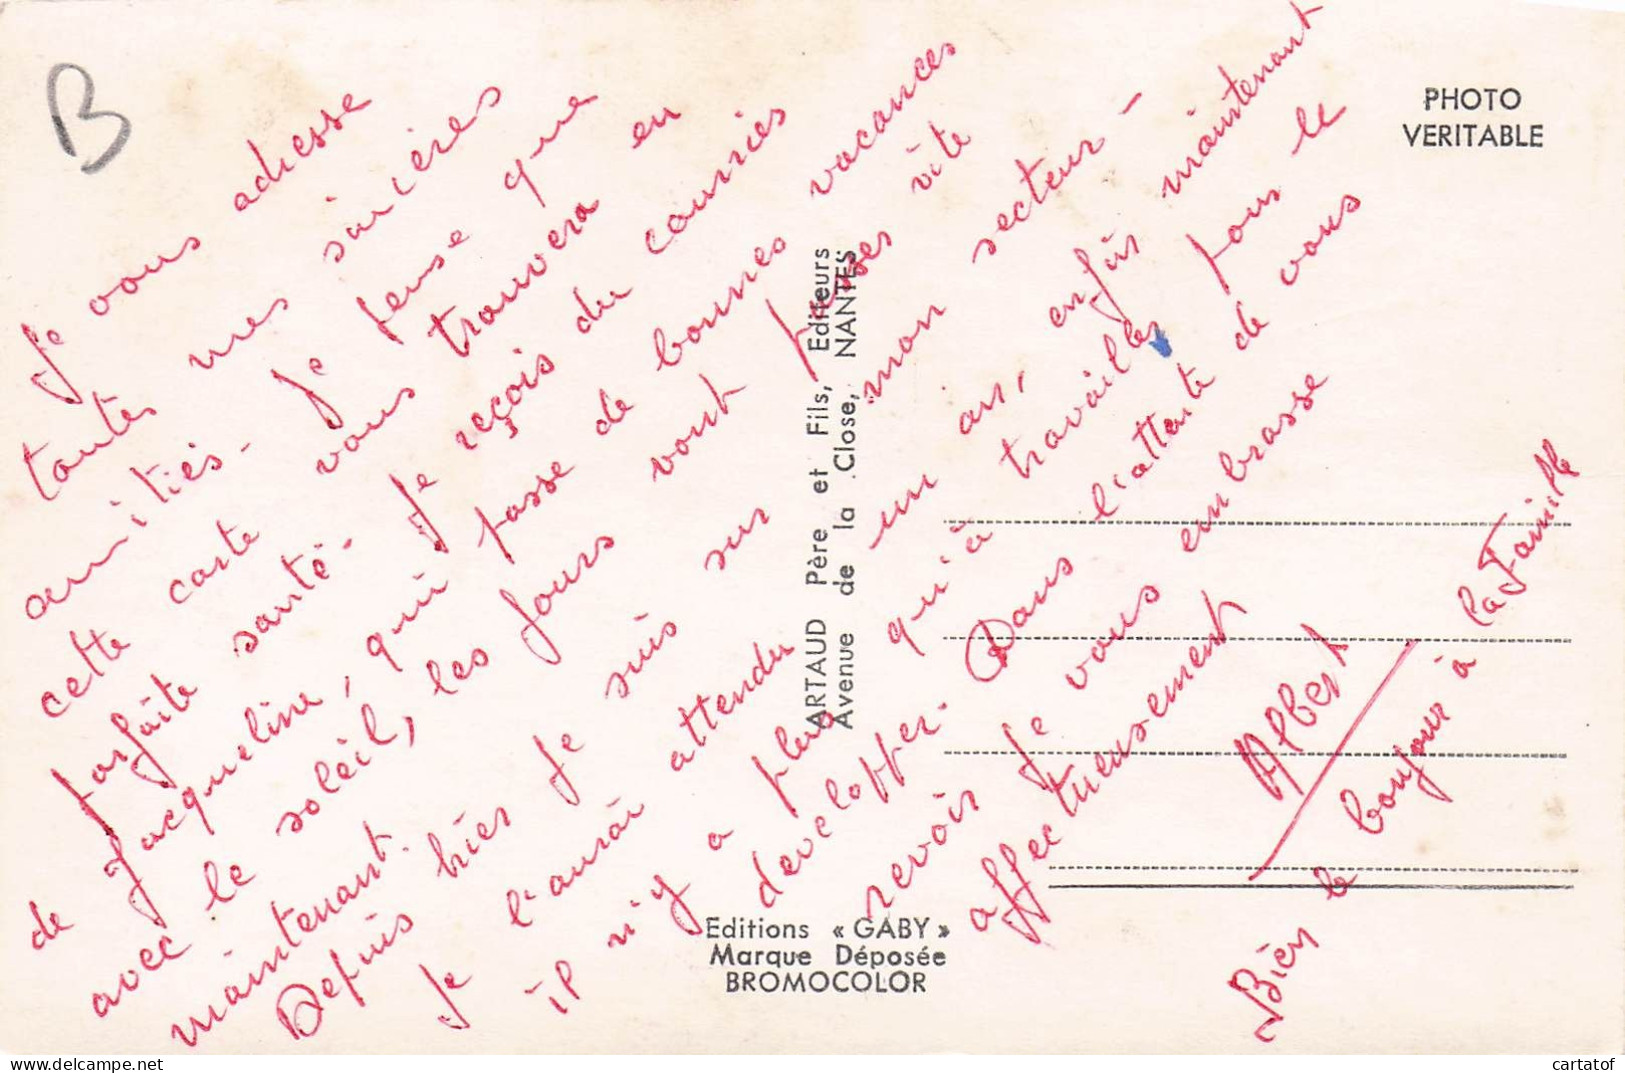 B
Je vous adresse
toutes mes sincères
amitiés - Je pense que
cette carte vous trouvera en
parfaite santé - Je reçois du courries
de Jacqueline, qui passe de bonnes vacances
avec le soleil, les jours vont passes vite
maintenant.
Depuis hies je suis sur mon secteur -
Je l'aurai attendu un an, enfin maintenant
il n'y a plus qu'à travailles pous le
developper. Dans l'attente de vous
revois je vous embrasse
affectueusement
Albert
Bien le bonjour à la Famille
ARTAUD Père et Fils, Editeurs
Avenue de la Close, NANTES
PHOTO
VERITABLE
Editions « GABY »
Marque Déposée
BROMOCOLOR
delcampe.net
cartatof